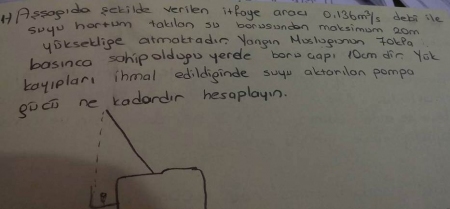 4) Aşşağıda şekilde verilen itfaye aracı 0.136m³/s debi ile
suyu hortum takılan su borusundan maksimum 20m
yüksekliğe atmaktadır. Yangın Musluğunun 70kPa
basınca sahip olduğu yerde boru çapı 10cm dir. Yük
kayıpları ihmal edildiğinde suyu aktarılan pompa
gücü ne kadardır hesaplayın.